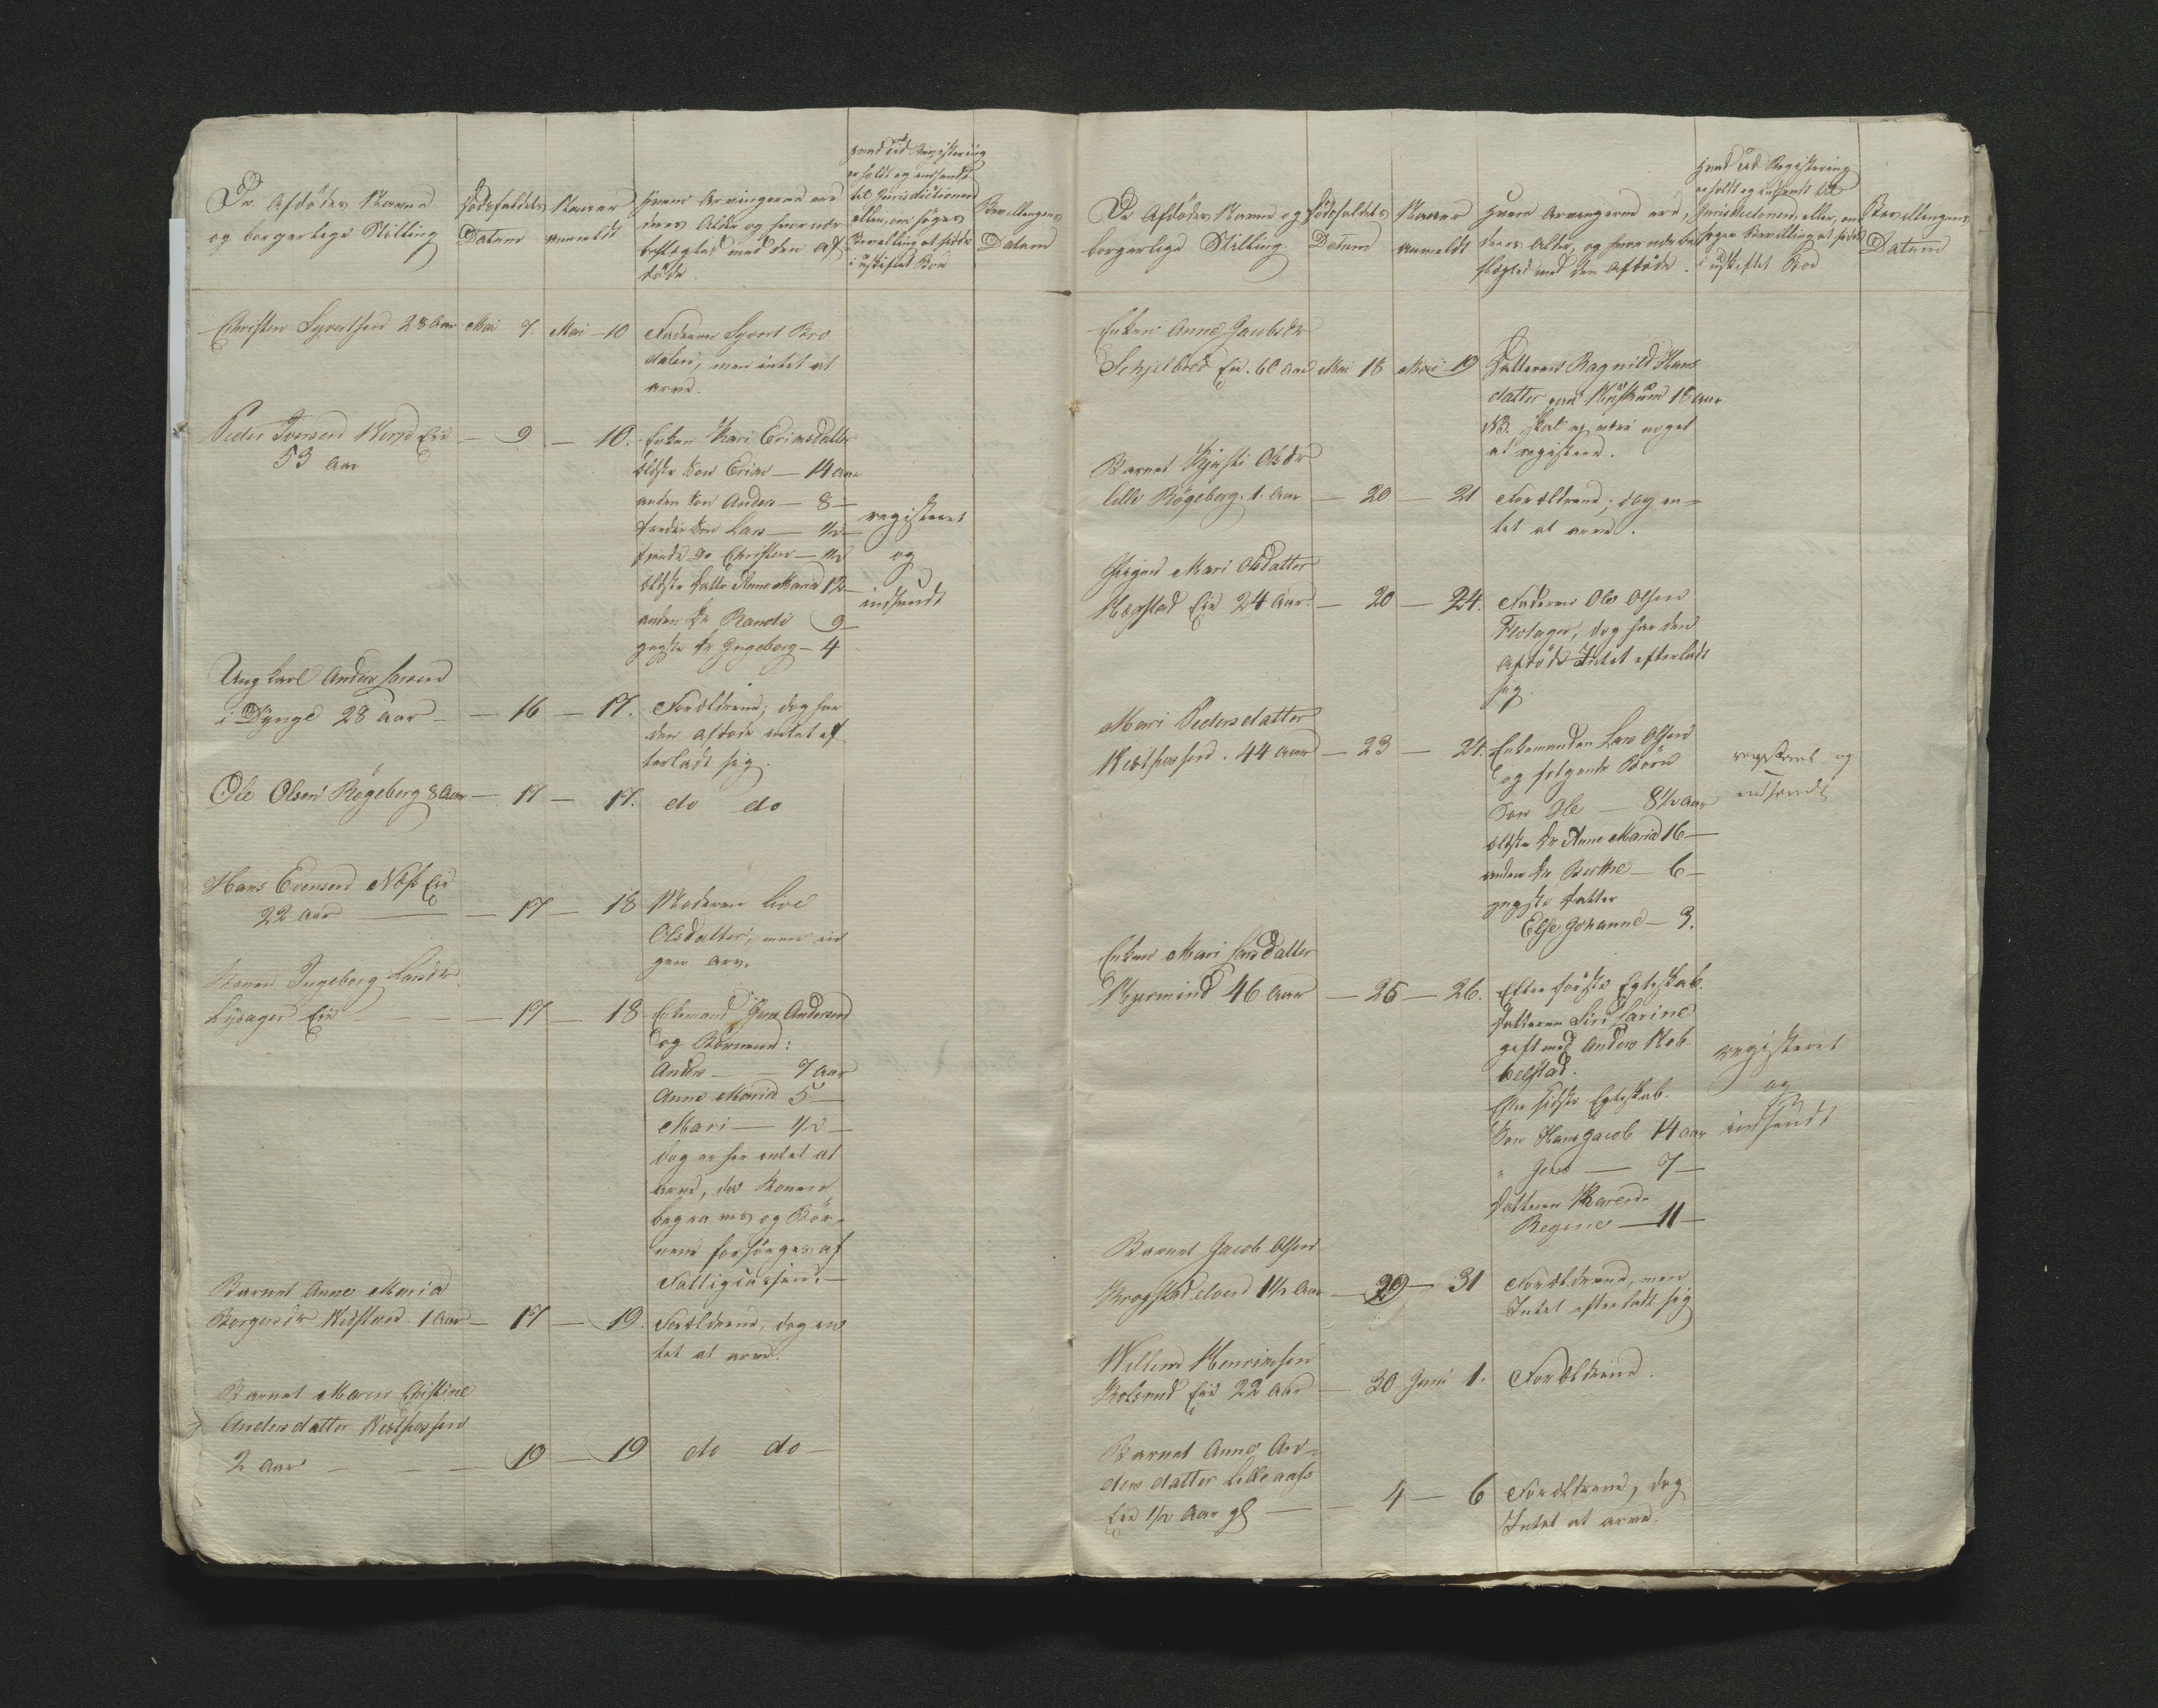 De Afdødes Navne
og borgerlige Stilling
Dødsfaldets
Datum
Naar
anmeldt
Hvem Arvingerne ere
deres Alder og hvor nær
beslægted med den Af
døde.
hvad ved Registering
er holdt og indsendt
til Jurisdictionen
eller, om søges
Bevilling at sidde
i uskiftet Boe
Bevillingens
Datum
Christen Syvertsen 28 Aar Mai 7. Mai 10 Faderen Syvert Bro
dalen, men intet at
arve.
Peder Iversen Eie — 9 — 10. Enken Kari Ericsdatter
53 Aar
ældste Søn Eric — 14 Aar
anden Søn Anders — 8 —
tredie Søn Lars — 1/2 —
fjerde do Christen — 1/2
ældste Datter Anne Maria 12 —
anden Dr Randi 9 —
yngste Dr Ingeborg — 4
registeret
og
indsendt
Ungkarl Anders
i Dynge 28 Aar — 16 — 17. Forældrene; dog har
den Afdøde intet ef
terladt sig.
Ole Olsen Røgeberg 8 Aar — 17 — 17. do do
Hans Evensen Næss Eie
22 Aar — 17 — 18 Moderen Live
Olsdatter, men in
gen Arv.
Konen Ingeborg Larsdr
Lybager Eie — 17 — 18 Enkemand Jens Andersen
og Børnene:
Anders — 7 Aar
Anne Maria 5 —
Mari — 1/2 —
dog er her intet at
arve, da Konen
begraves og Bør-
nene forsørges af
Fattigcassen. —
Barnet Anne Maria
Borgersdr 1 Aar — 17 — 19. Forældrene, dog in
tet at arve.
Barnet Maren Christine
Andersdatter Vestfossen
2 Aar — 19 — 19 do do —
De Afdødes Navne og
borgerlige Stilling.
Dødsfaldets
Datum
Naar
anmeldt
Hvem Arvingerne ere,
deres Alder, og hvor nær be
slægted med den Afdøde.
Hvad ved Registering
er holdt og indsendt til
Jurisdictionen, eller, om
søges Bevilling at sidde
i uskiftet Boe
Bevillingens
Datum
Enken Anne Jacobsdr
Schjelbred Eie. 60 Aar Mai 18 Mai 19 Datteren Ragnild Hans
datter paa 18 Aar
NB. skal ej være noget
at registere.
Barnet Kjersti Olsdr
lille Røgeberg. 1. Aar — 20 — 21 Forældrene; dog in-
tet at arve.
Pigen Mari Olsdatter
Eie 24 Aar. — 20 — 24. Faderen Ole Olsen
dog har den
Afdøde Intet efterladt
sig.
Mari Pedersdatter
Vestfossen. 44 Aar — 23 — 24. Enkemanden Lars Olsen
og følgende Børn
Søn Ole — 8 1/2 Aar
ældste Dr Anne Maria 16 —
anden Dr Berthe — 6 —
yngste Datter
Else Johanne — 3.
registeret og
indsendt
Enken Mari Larsdatter
46 Aar — 25 — 26. Efter første Egteskab.
Datteren Siri Larine
gift med Anders
belstad.
Efter sidste Egteskab.
Søn Hans Jacob 14 Aar
" Jens — 7 —
Datteren Karen
Regine — 11 —
registeret
og
indsendt
Barnet Jacob Olsen
Krogstadelven 1 1/2 Aar — 29 — 31 Forældrene, men
Intet efterladt sig
Willem Henricsen
Kolsrud Eie 22 Aar — 30 Juni 1. Forældrene.
Barnet Anne An-
dersdatter Lilleaass
Eie 1/2 Aar gl — 4 — 6 Forældrene, dog
Intet at arve.